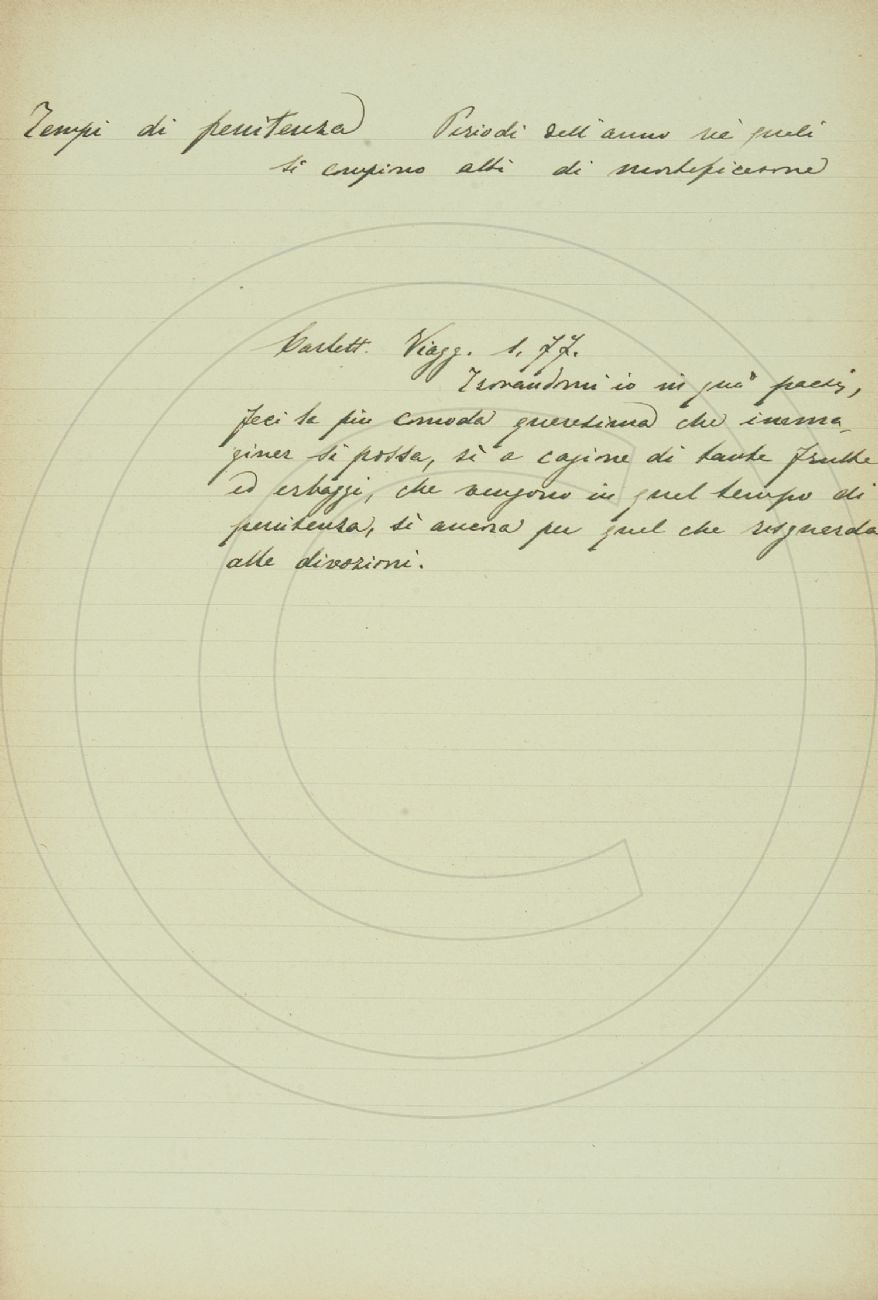 Tempi di penitenza Periodi dell'anno ne' quali
si compino atti di mortificazione
Carlett. Viagg. 1, 77.
Trovandomi io in quei paesi,
feci la più comoda quaresima che imma-
ginar si possa, sì a cagione di tante frutte
ed erbaggi, che vengono in quel tempo di
penitenza, sì ancora per quel che risguarda
alle divozioni.